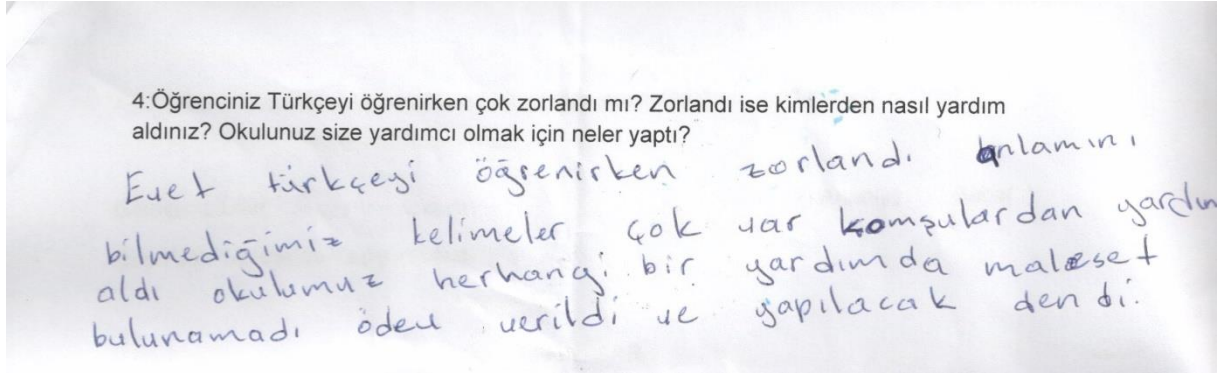 4:Öğrenciniz Türkçeyi öğrenirken çok zorlandı mı? Zorlandı ise kimlerden nasıl yardım
aldınız? Okulunuz size yardımcı olmak için neler yaptı?
Evet türkçeyi öğrenirken zorlandı anlamını
bilmediğimiz kelimeler çok var komşulardan yardım
aldı okulumuz herhangi bir yardımda malesef
bulunamadı ödev verildi ve yapılacak dendi.